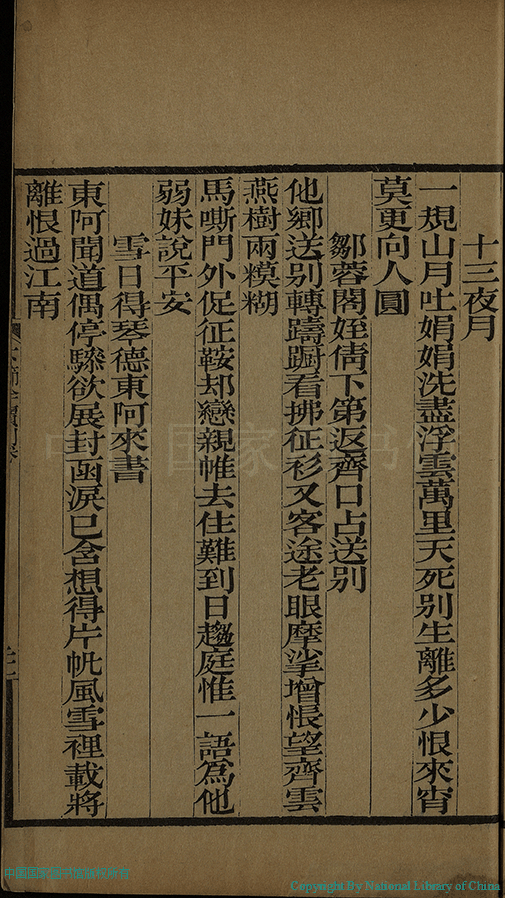 十三夜月
一規山月吐娟娟洗盡浮雲萬里天死別生離多少恨來宵
莫更向人圓
鄒蓉閣姪倩下第返齊口占送別
他鄉送別轉躊蹰看拂征衫又客途老眼摩挲增悵望齊雲
燕樹兩糢糊
馬嘶門外促征鞍却戀親帷去住難到日趨庭惟一語為他
弱妹說平安
雪日得琴德東阿來書
東阿聞道偶停驂欲展封函淚已含想得片帆風雪裡載將
離恨過江南
Copyright By National Library of China